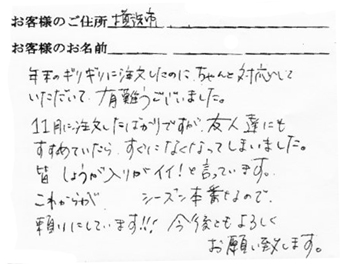 お客様のご住所 横浜市
お客様のお名前
年末のギリギリに注文したのに、ちゃんと対応して
いただいて、有難うございました。
11月に注文したばかりですが、友人達にも
すすめていたら、すぐになくなってしまいました。
皆 しょうが入りがイイ！と言っています。
これからが、 シーズン本番なので
頼りにしています!!! 今後ともよろしく
お願い致します。